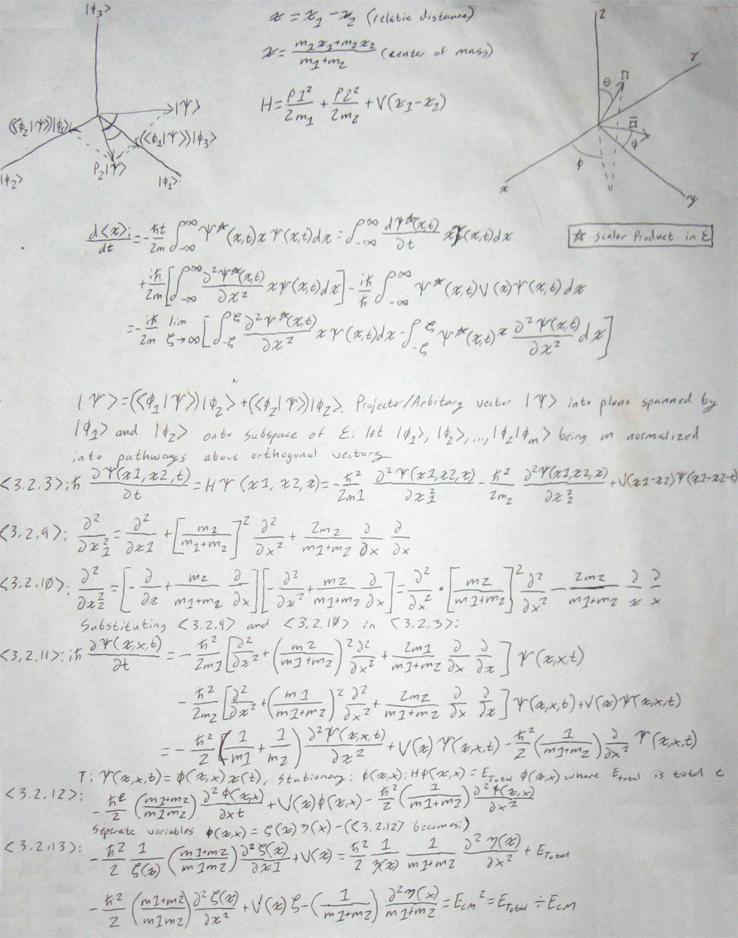 |ϕ₃>
|Ψ>
(<ϕ₂|Ψ>)|ϕ₂>
(<ϕ₁|Ψ>)|ϕ₃>
P₂|Ψ>
|ϕ₂>
|ϕ₁>
x = x₁ - x₂ (relatic distance)
x = (m₁x₁+m₂x₂)/(m₁+m₂) (center of mass)
H = P1²/2m₁ + P2²/2m₂ + V(x₁-x₂)
z
r
θ
Π
Π
ϕ
ϕ
x
y
☆ Scalar Product in ξ
d<x>i/dt = -ħt/2m ∫-∞^∞ Ψ*(x,t)xΨ(x,t)dx = ∫-∞^∞ dΨ*(x,t)/∂t xΨ(x,t)dx
+ iħ/2m [∫-∞^∞ ∂²Ψ*(x,t)/∂x² xΨ(x,t)dx] - iħ/ħ ∫-∞^∞ Ψ*(x,t)V(x)Ψ(x,t)dx
= - iħ/2m lim ζ→∞ [∫-ζ^ζ ∂²Ψ*(x,t)/∂x² xΨ(x,t)dx - ∫-ζ^ζ Ψ*(x,t)x ∂²Ψ(x,t)/∂x² dx]
|Ψ> = (<ϕ₁|Ψ>)|ϕ₂> + (<ϕ₂|Ψ>)|ϕ₂>. Projector/Arbitary vector |Ψ> into plane spanned by
|ϕ₁> and |ϕ₂> onto subspace of ξ: let |ϕ₁>, |ϕ₂>,...,|ϕ₂|ϕm> being m normalized
into pathways about orthogonal vectors
<3.2.3>: iħ ∂Ψ(x1,x2,t)/∂t = HΨ(x1,x2,x) = -ħ²/2m1 ∂²Ψ(x1,x2,x)/∂x₁² - ħ²/2m₂ ∂²Ψ(x1,x2,x)/∂x₂² + V(x1-x2)Ψ(x1-x2-x)
<3.2.9>: ∂²/∂x₁² = ∂²/∂x1 + [m₁/(m₁+m₂)]² ∂²/∂x² + 2m₂/(m1+m2) ∂/∂x ∂/∂x
<3.2.10>: ∂²/∂x₂² = [-∂/∂x + m2/(m1+m2) ∂/∂x][-∂²/∂x² + m2/(m1+m2) ∂/∂x] = ∂²/∂x² · [m2/(m1+m2)]² ∂²/∂x² - 2m2/(m1+m2) ∂/x ∂/x
Substituting <3.2.9> and <3.2.10> in <3.2.3>:
<3.2.11>: iħ ∂Ψ(x,x,t)/∂t = -ħ²/2m1 [∂²/∂x² + (m2/(m1+m2))² ∂²/∂x² + 2m1/(m1+m2) ∂/∂x ∂/∂x] Ψ(x,x,t)
-ħ²/2m₂ [∂²/∂x² + (m1/(m1+m2))² ∂²/∂x² + 2m2/(m1+m2) ∂/∂x ∂/∂x] Ψ(x,x,t) + V(x)Ψ(x,x,t)
= -ħ²/2 (1/m1 + 1/m2) ∂²Ψ(x,x,t)/∂x² + V(x)Ψ(x,x,t) - ħ²/2 (1/(m1+m2)) ∂/∂x² Ψ(x,x,t)
T: Ψ(x,x,t) = ϕ(x,x)x(t), stationary: ϕ(x,x): Hϕ(x,x) = ETotal ϕ(x,x) where Etotal is total e
<3.2.12>: -ħ²/2 ((m1+m2)/(m1m2)) ∂²ϕ(x,x)/∂xt + V(x)ϕ(x,x) - ħ²/2 (1/(m1+m2)) ∂²ϕ(x,x)/∂x²
Seperate variables ϕ(x,x) = ζ(x)η(x) - (<3.2.12> becomes:)
<3.2.13>: -ħ²/2 1/ζ(x) ((m1+m2)/(m1m2)) ∂²ζ(x)/∂x1 + V(x) = ħ²/2 1/η(x) 1/(m1+m2) ∂²η(x)/∂x² + ETotal
-ħ²/2 ((m1+m2)/(m1m2)) ∂²ζ(x)/∂x² + V(x)ζ - (1/(m1+m2)) ∂²η(x)/(m1+m2) = ECM² = ETotal ÷ ECM